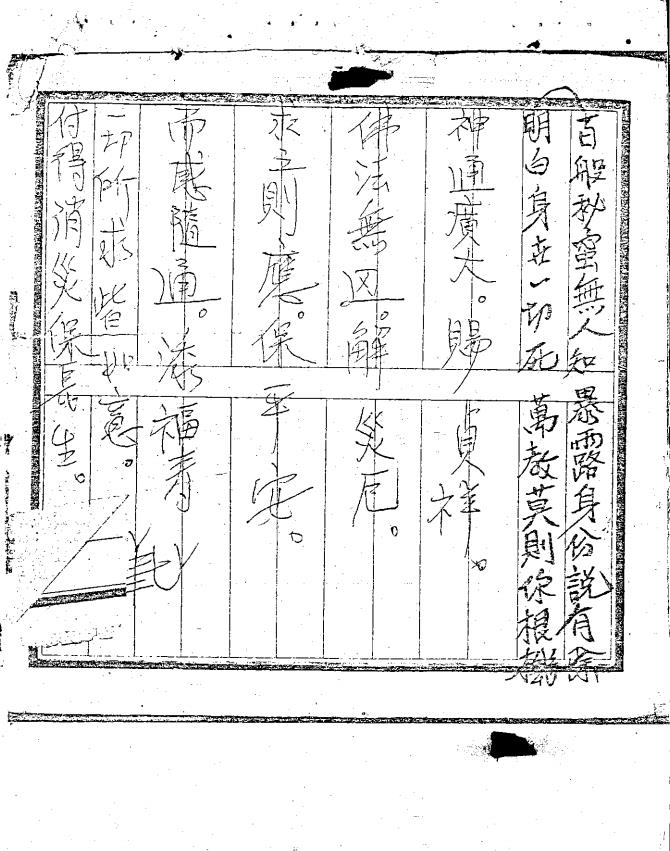 百般秘密無人知 暴露身份說有除
明白身世一切死 萬教莫測你根機
神通廣大。賜貞祥。
佛法無边。解災厄。
求之則應。保平安。
而感隨通。添福寿
一切所求皆如意。
付得消災保長生。